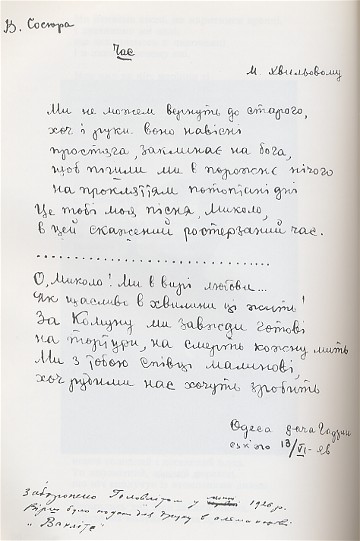 В. Сосюра
Час
М. Хвильовому
Ми не можем вернуть до старого,
хоч і руки воно навісні
простяга, заклинає на бога,
щоб пішли ми в порожнє нічого
на прокляттям потоптані дні
Це тобі моя пісня, Миколо,
в цей скажений розтерзаний час.
О, Миколо! Ми в вирі любови...
Як щасливо в хвилини ці жить!
За Комуну ми завжди готові
на тортури, на смерть кожну мить
Ми з тобою співці малинові,
хоч рудими нас хочуть зробить
Одеса дача
13/VI-26
Заборонено Головлітом у 1926 р.
Вірш було подано для друку в альманахові
"Вапліте"